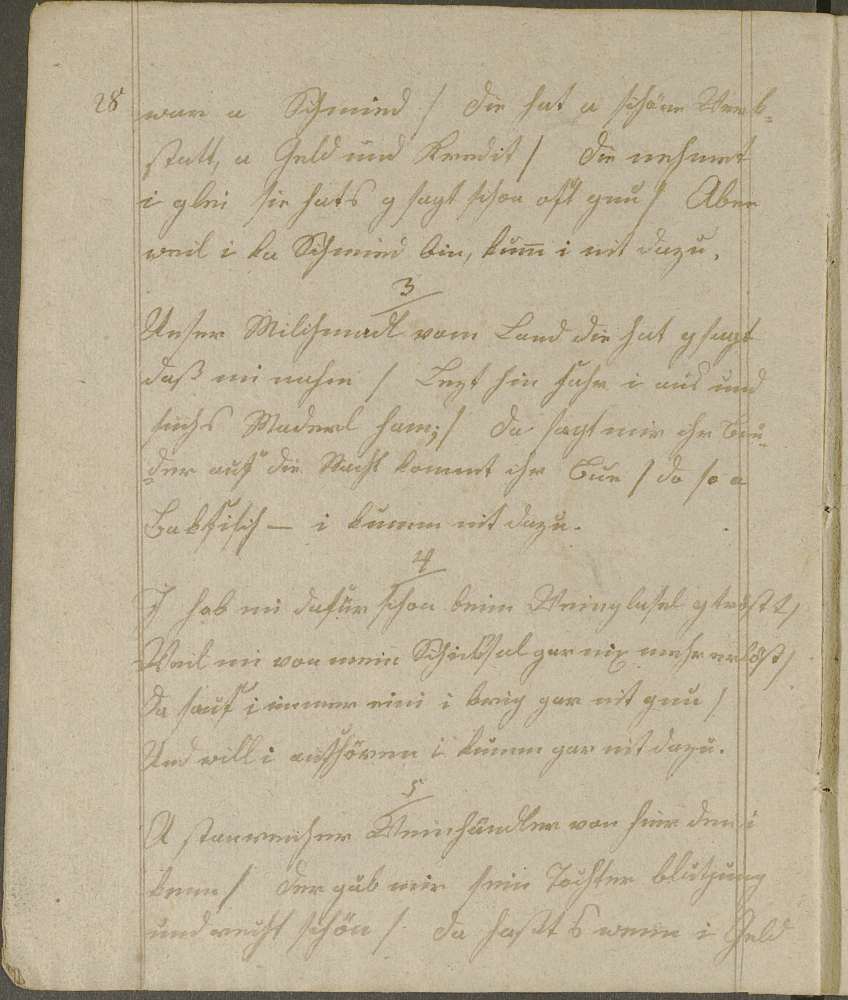 28 war a Schmied / die hat a schöne Werk-
statt, a Geld und Kredit / die nehmet
i glei sie hats g sagt schon oft gnu / Aber
weil i ka Schmied bin, kum̄ i nit dazu.
3
Unser Milchmadl vom Land die hat g sagt
daß mi nahm / Lezt hin fahr i aus und
suchs Maderl ham; / da sagt mir ihr Bru-
der auf die Nacht kommt ihr Bue / da so a
Bakfisch — i kumm nit dazu.
4
I hab mi dafür schon beim Weinglasel g tröst /
Weil mi von mein Schiksal gar nix mehr erlößt /
Da sauf i immer eini i krig gar nit gnu /
Und will i aufhören i kumm gar nit dazu.
5
A stanreicher Weinhändler von hier den i
kenn / der gäb mir sein Tochter blutjung
und recht schön / da haßts wenn i Geld